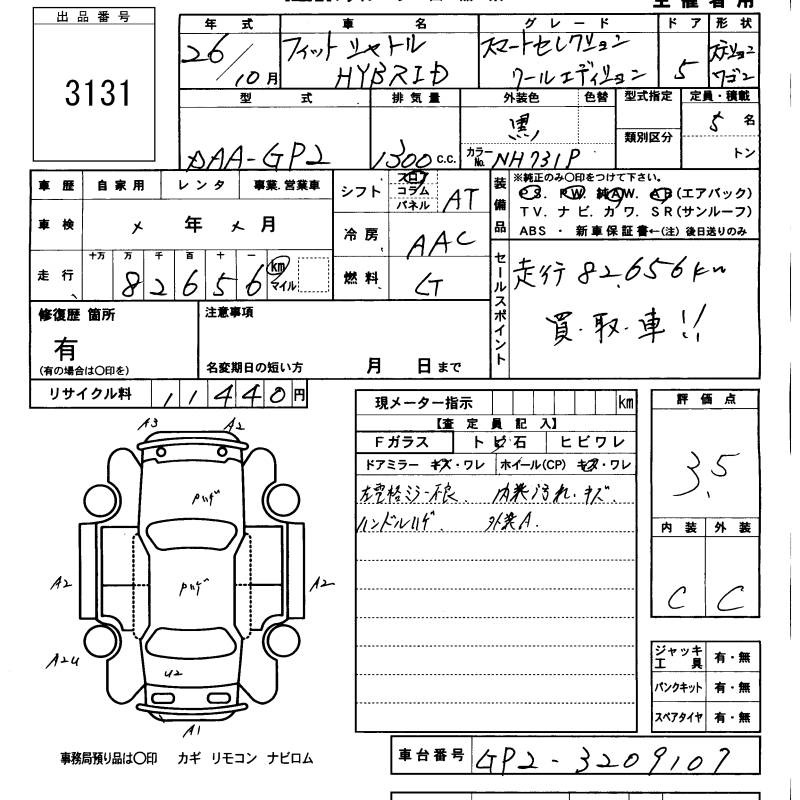 出品番号
3131
年式 車名 グレード ドア 形状
26/10月 フィットシャトル HYBRID スマートセレクション クールエディション 5 ステーションワゴン
型式 排気量 外装色 色替 型式指定 定員・積載
類別区分
DAA-GP2 1300 c.c. 黒 カラーNo. NH731P 5名
トン
車歴 自家用 レンタ 事業.営業車
シフト フロア コラム パネル AT
装備品
※純正のみ〇印をつけて下さい。
PS. PW. 純AW. AB(エアバック)
TV. ナビ. カワ. SR(サンルーフ)
ABS ・ 新車保証書←(注)後日送りのみ
車検 × 年 × 月
冷房 AAC
走行 十万 万 千 百 十 一 km マイル
82656
燃料 G
セールスポイント
走行82,656km
買・取・車!!
修復歴 箇所
有
(有の場合は〇印を)
注意事項
名変期日の短い方 月 日まで
リサイクル料 11440円
現メーター指示 km
【査定員記入】
Fガラス トビ石 ヒビワレ
ドアミラー キズ・ワレ ホイール(CP) キズ・ワレ
左電格ミラー不良、 内装汚れ・キズ.
ハンドルハゲ 外装A.
評価点
3.5
内装 外装
C C
A3 A2
Pハゲ
A2 Pハゲ A2
A2U U2
A1
ジャッキ工具 有・無
パンクキット 有・無
スペアタイヤ 有・無
事務局預り品は〇印 カギ リモコン ナビロム
車台番号 GP2-3209107